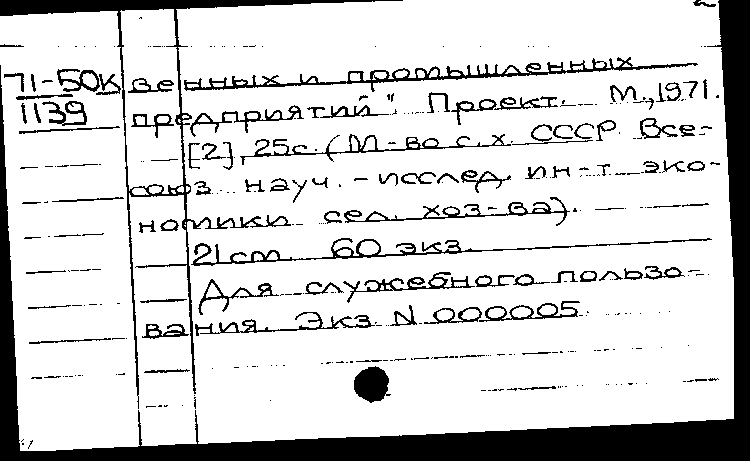 71-50к венных и промышленных
1139 предприятий". Проект. М., 1971.
[2], 25с. (М-во с.х. СССР. Все-
союз. науч.-исслед. ин-т эко-
номики сел. хоз-ва).
21 cm. 60 экз.
Для служебного пользо-
вания. Экз. N 000005